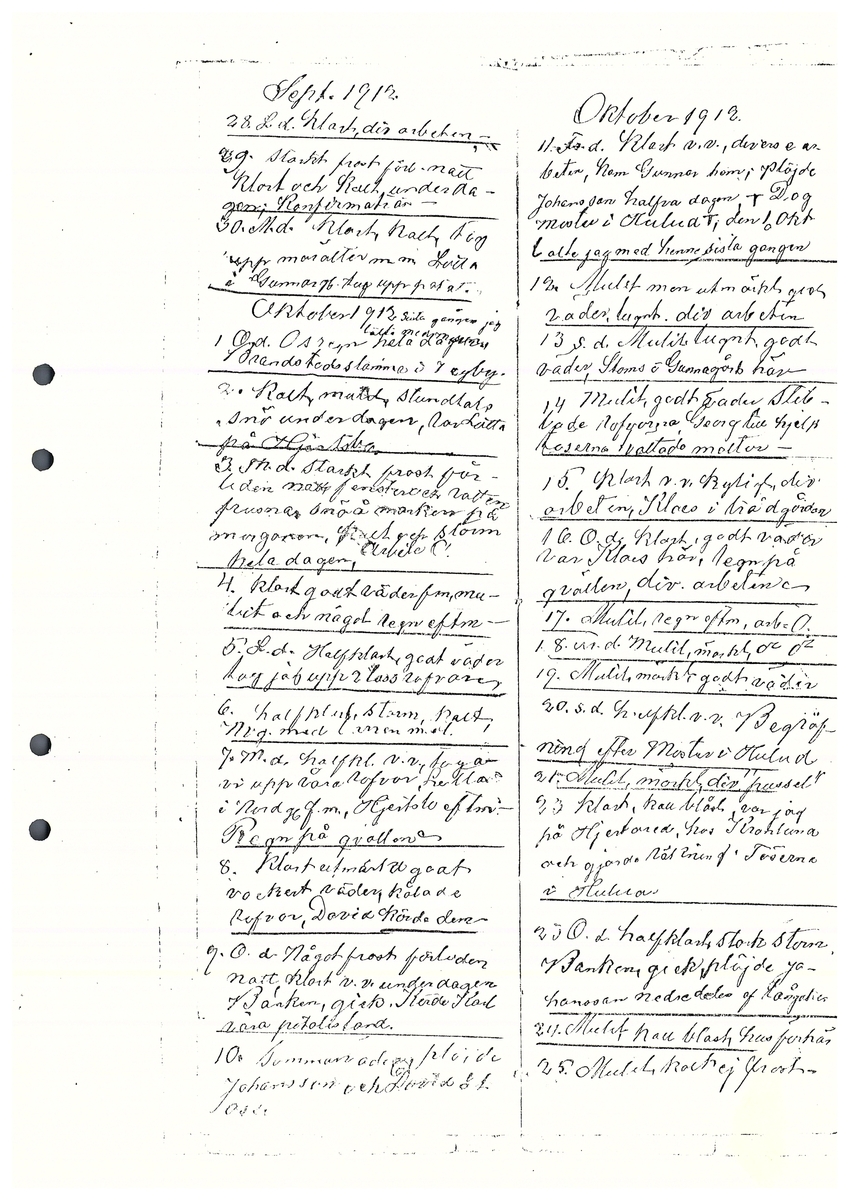 Sept. 1912
28. L.d. Klart, div arbeten,
29. Starkt frost förl. natt
Klart och Kalt, under da-
gen; Konfirmation
30. M.d. Klart, Kalt, tog
upp morötter m.m. Lotta
i Gunnarp. tog upp potat.
Oktober 1912 sista gången jag
1 O.d. Ösregn hela dagen
Brandstodsstämma i
2. Kalt, mulet, stundtals
snö under dagen, var Lotta
på
3. Th.d. Starkt frost för-
liden natt fenster och vatten
frusna, snö å marken på
morgonen, Kalt och storm
hela dagen, Arbete O.
4. Klart godt väder fm, mu-
let och något regn eftm
5. L.d. Halfklart, godt väder
tog jäb upp rofvor
6. Halfklart, storm, Kalt,
7. M.d. halfkl. v.v., toga
vi upp våra rofvor, Lotta
i Nordg f.m., Hjertsto eftm
Regn på qvällen
8. Klart utmärkt godt
vackert väder, kålade
rofvor, David körde dem
9. O.d. Något frost förliden
natt, Klart v.v. under dagen
Banken, gick. Körde Karl
våra potatisland.
10. Sommarväder, plöjde
Johansson och David åt
oss.
Oktober 1912.
11. Fr.d. Klart v.v., diverse ar-
beten, Kom Gunnar hem; Plöjde
Johansson halfva dagen, † Dog
Moster i Hulud †, den 1 Okt
talte jag med henne sista gången
12. Mulet men utmärkt godt
väder, lugnt. div arbeten
13 s.d. Mulit lugnt, godt
väder, Stoms o Gunnagårds här
14 Mulit, godt väder
vade rofvorna, Georg Lill hjelp
töserna tvättade mattor
15. Klart v.v. kyligt, div
arbeten, Klaes i trädgården
16. O.d. Klart, godt väder
var Klaes här, regn på
qvällen, div. arbeten
17. Mulit, regn eftm, arbe O.
18. Mulit, mörkt,
19. Mulit, mörkt godt väder
20. s.d. halfkl. v.v. Begräf-
ning efter Moster i Hulud
21. Mulit, mörkt, div "pussel"
23 Klart, kall blåst, var jag
på Hjertared, hos Krohlund
och gjorde räkning. Töserna
i Hulud
23 O.d. halfklart, stark storm,
Banken, gick, plöjde Jo-
hansson
24. Mulit, kall blåst,
25. Mulit, kalt ej frost